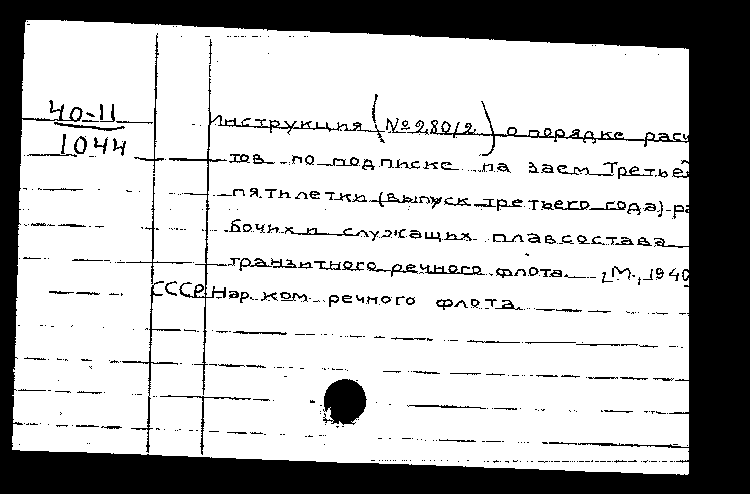 40-11
1044
Инструкция (№ 280/2) о порядке расч
тов по подписке на заем Третьей
пятилетки (выпуск третьего года) ра
бочих и служащих плавсостава
транзитного речного флота. [М., 1940
СССР Нар. ком. речного флота.